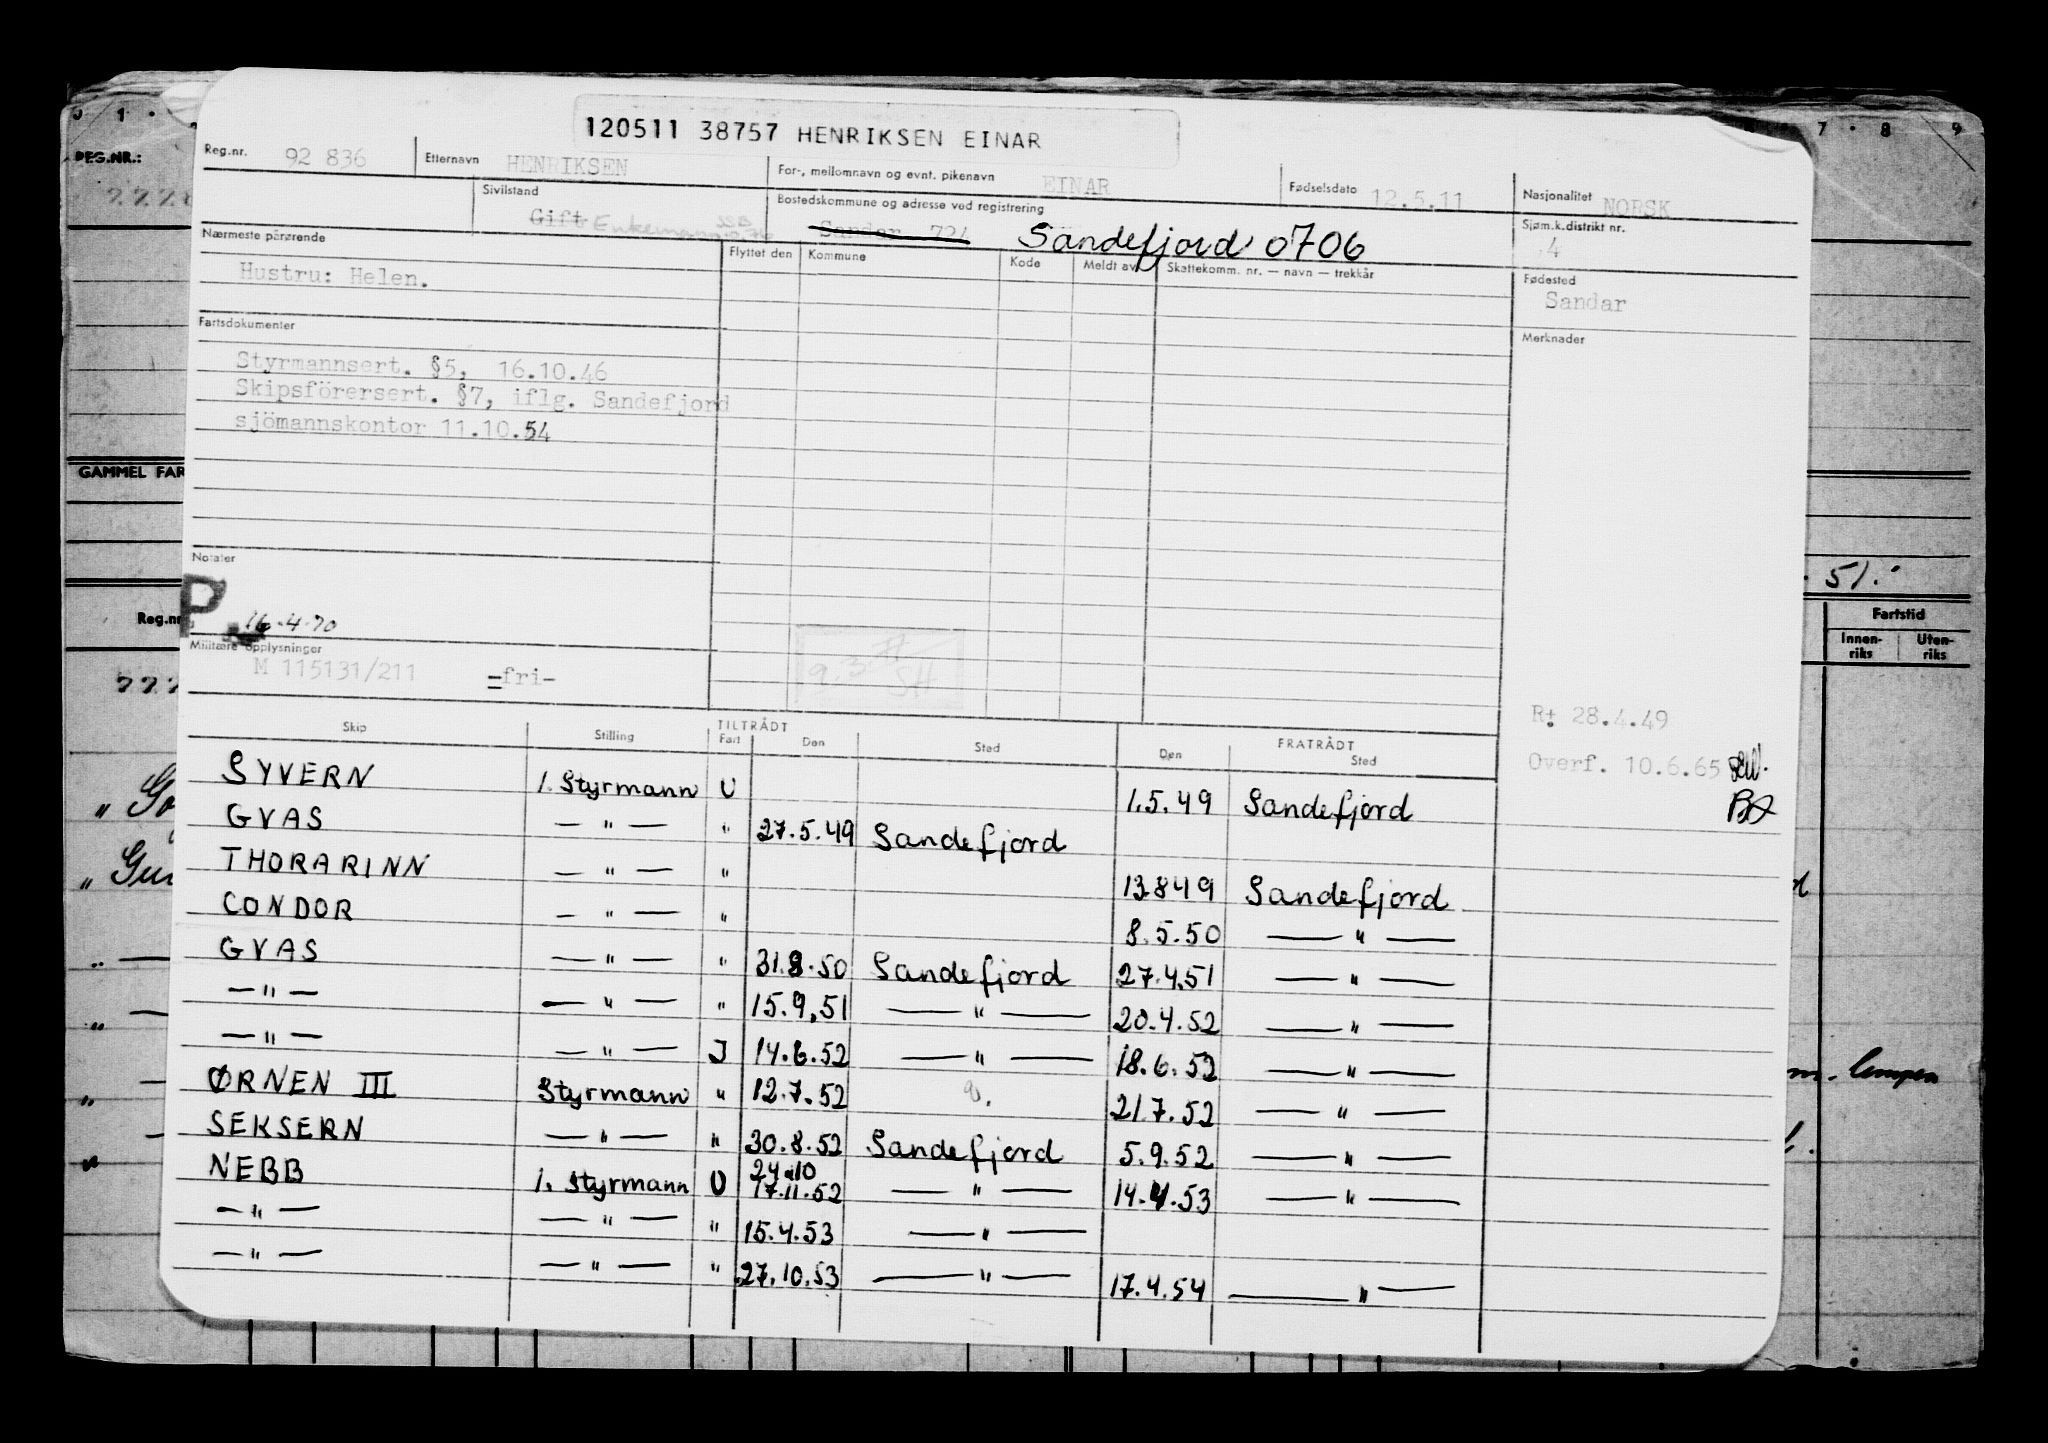 120511 38757 HENRIKSEN EINAR
Reg.nr. 92 836 Etternavn HENRIKSEN For-, mellomnavn og evnt. pikenavn EINAR Fødselsdato 12.5.11 Nasjonalitet NORSK
Sivilstand Gift Enkemann Bostedskommune og adresse ved registrering Sandar 724 Sandefjord 0706 Sjøm.k.distrikt nr. 4
Nærmeste pårørende Flyttet den Kommune Kode Meldt av Skattekomm. nr. — navn — trekkår Fødested
Hustru: Helen. Sandar
Fartsdokumenter Merknader
Styrmannsert. §5, 16.10.46
Skipsförersert. §7, iflg. Sandefjord
sjömannskontor 11.10.54
Notater
P 16.4.70
Militære opplysninger
M 115131/211 =fri-
9.3. SH
R: 28.4.49
Overf. 10.6.65
TILTRÅDT FRATRÅDT
Skip Stilling Fart Den Sted Den Sted
SYVERN 1. Styrmann U 1.5.49 Sandefjord
GVAS — " — " 27.5.49 Sandefjord
THORARINN — " — " 13.8.49 Sandefjord
CONDOR — " — " 8.5.50 — " —
GVAS — " — " 31.8.50 Sandefjord 27.4.51 — " —
— " — — " — " 15.9.51 — " — 20.4.52 — " —
— " — — " — I 14.6.52 — " — 18.6.52 — " —
ØRNEN III Styrmann " 12.7.52 21.7.52 — " —
SEKSERN — " — " 30.8.52 Sandefjord 5.9.52 — " —
24.10
NEBB 1. Styrmann U 17.11.52 — " — 14.4.53 — " —
— " — — " — " 15.4.53 — " —
— " — — " — " 27.10.53 — " — 17.4.54 — " —
REG.NR.:
GAMMEL FAR
Reg.nr
51.
Fartstid
Innen-
riks
Uten-
riks
7 8 9